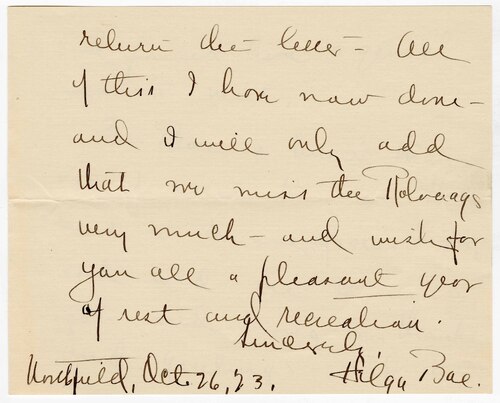 return the letter – All
of this I have now done –
and I will only add
that we miss the Rolvaags
very much – and wish for
you all a pleasant year
of rest and recreation.
Sincerely,
Northfield, Oct. 26, 23. Hilga Boe.